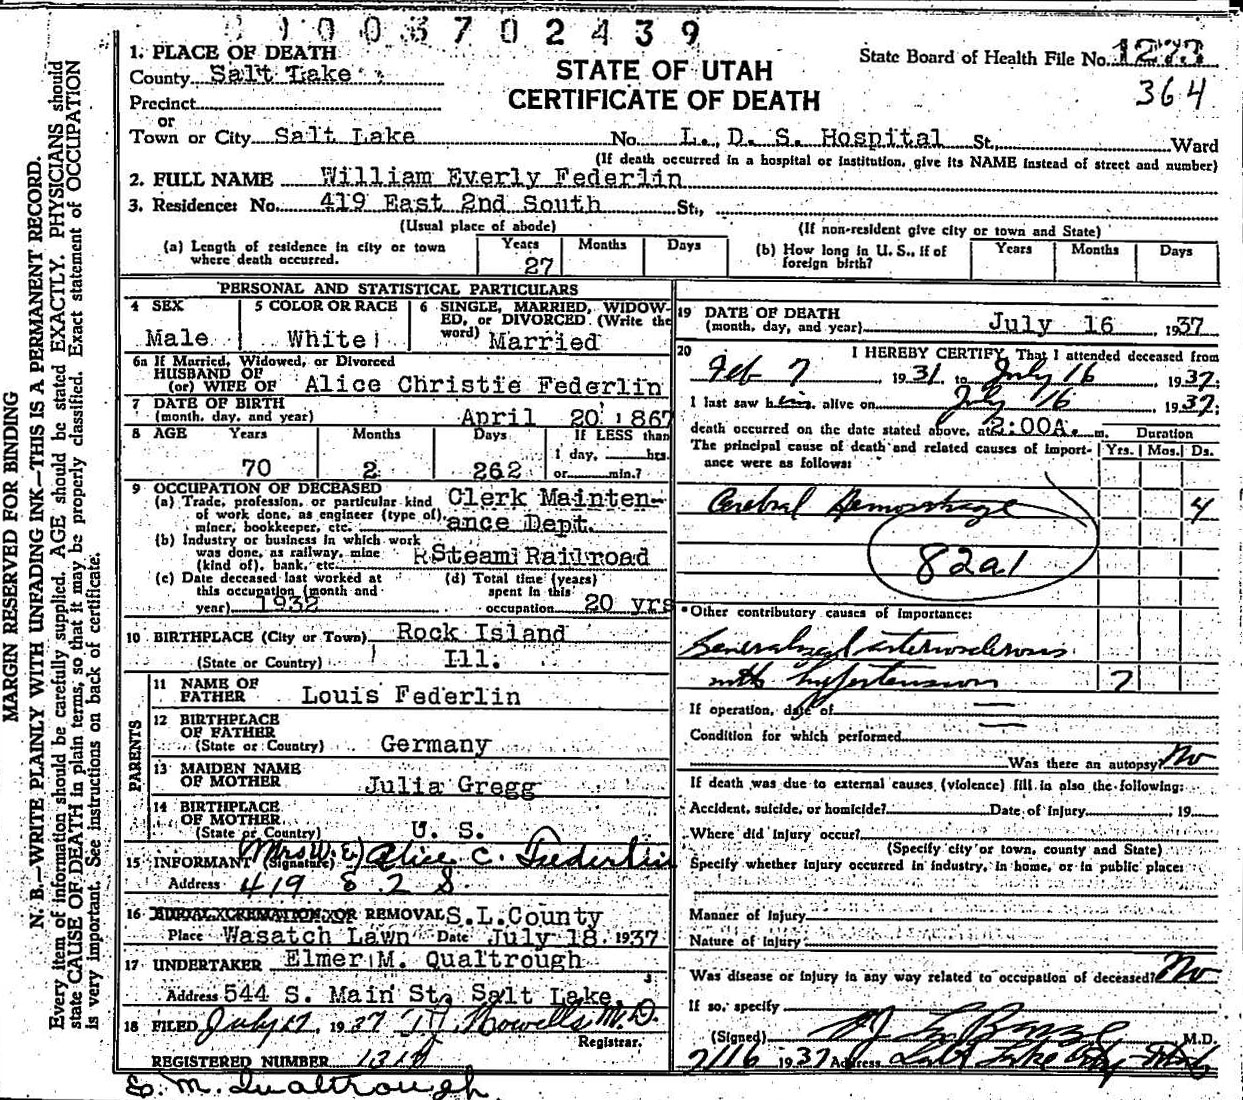 1003702439
1. PLACE OF DEATH
County Salt Lake
STATE OF UTAH
State Board of Health File No. 1273
Precinct
CERTIFICATE OF DEATH
364
or
Town or City Salt Lake No. L. D. S. Hospital St., Ward
(If death occurred in a hospital or institution, give its NAME instead of street and number)
2. FULL NAME William Everly Federlin
3. Residence: No. 419 East 2nd South St.,
(Usual place of abode) (If non-resident give city or town and State)
(a) Length of residence in city or town where death occurred. Years 27 Months Days
(b) How long in U. S., if of foreign birth? Years Months Days
PERSONAL AND STATISTICAL PARTICULARS
4 SEX Male
5 COLOR OR RACE White
6 SINGLE, MARRIED, WIDOWED, or DIVORCED (Write the word) Married
6a If Married, Widowed, or Divorced
HUSBAND OF
(or) WIFE OF Alice Christie Federlin
7 DATE OF BIRTH
(month, day, and year) April 20 1867
8 AGE Years Months Days If LESS than
1 day, hrs.
70 2 262 or min.?
9 OCCUPATION OF DECEASED
(a) Trade, profession, or particular kind
of work done, as engineer (type of),
miner, bookkeeper, etc. Clerk Mainten-
ance Dept.
(b) Industry or business in which work
was done, as railway, mine
(kind of), bank, etc. R Steam Railroad
(c) Date deceased last worked at
this occupation (month and
year) 1932
(d) Total time (years)
spent in this
occupation 20 yrs
10 BIRTHPLACE (City or Town) Rock Island
(State or Country) Ill.
PARENTS
11 NAME OF
FATHER Louis Federlin
12 BIRTHPLACE
OF FATHER
(State or Country) Germany
13 MAIDEN NAME
OF MOTHER Julia Gregg
14 BIRTHPLACE
OF MOTHER
(State or Country) U. S.
15 INFORMANT (Signature) (Mrs W. E.) Alice C. Federlin
Address 419 E 2 S.
16 BURIAL, CREMATION, OR REMOVAL S.L. County
Place Wasatch Lawn Date July 18, 1937
17 UNDERTAKER Elmer M. Qualtrough
Address 544 S. Main St, Salt Lake,
18 FILED July 17, 1937 Howells M.D.
Registrar.
REGISTERED NUMBER
E. M. Qualtrough
19 DATE OF DEATH
(month, day, and year) July 16 1937
20 I HEREBY CERTIFY, That I attended deceased from
Feb 7 1931 to July 16, 1937;
I last saw him alive on July 16 1937;
death occurred on the date stated above, at 2:00A. m. Duration
The principal cause of death and related causes of import- Yrs. Mos. Ds.
ance were as follows:
Cerebral Hemorrhage 4
82a1
Other contributory causes of importance:
Generalized arteriosclerosis
with hypertension 7
If operation, date of
Condition for which performed
Was there an autopsy? No
If death was due to external causes (violence) fill in also the following:
Accident, suicide, or homicide? Date of injury , 19
Where did injury occur?
(Specify city or town, county and State)
Specify whether injury occurred in industry, in home, or in public place:
Manner of Injury
Nature of Injury
Was disease or injury in any way related to occupation of deceased? No
If so, specify
(Signed) M.D.
7/16 1937 Address Salt Lake City Utah
MARGIN RESERVED FOR BINDING
N. B.—WRITE PLAINLY WITH UNFADING INK—THIS IS A PERMANENT RECORD.
Every item of information should be carefully supplied. AGE should be stated EXACTLY. PHYSICIANS should
state CAUSE OF DEATH in plain terms, so that it may be properly classified. Exact statement of OCCUPATION
is very important. See instructions on back of certificate.